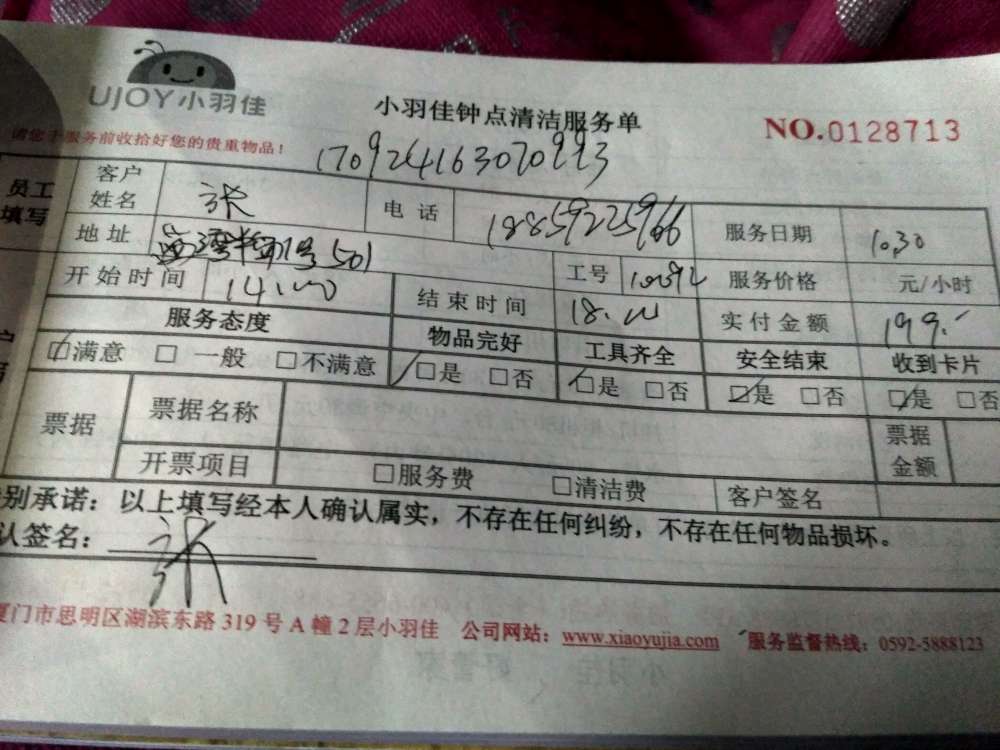 UJOY小羽佳
小羽佳钟点清洁服务单
NO.0128713
请您于服务前收拾好您的贵重物品！
170924163070993
员工填写
客户姓名 张 电话 18859225966 服务日期 10.30
地址 501 工号 服务价格 元/小时
开始时间 14:00 结束时间 18:00 实付金额 199.-
服务态度 物品完好 工具齐全 安全结束 收到卡片
☑满意 □一般 □不满意 ☑是 □否 ☑是 □否 ☑是 □否 ☑是 □否
票据 票据名称 票据金额
开票项目 □服务费 □清洁费 客户签名
别承诺：以上填写经本人确认属实，不存在任何纠纷，不存在任何物品损坏。
认签名：张
厦门市思明区湖滨东路319号A幢2层小羽佳 公司网站：www.xiaoyujia.com 服务监督热线：0592-5888123